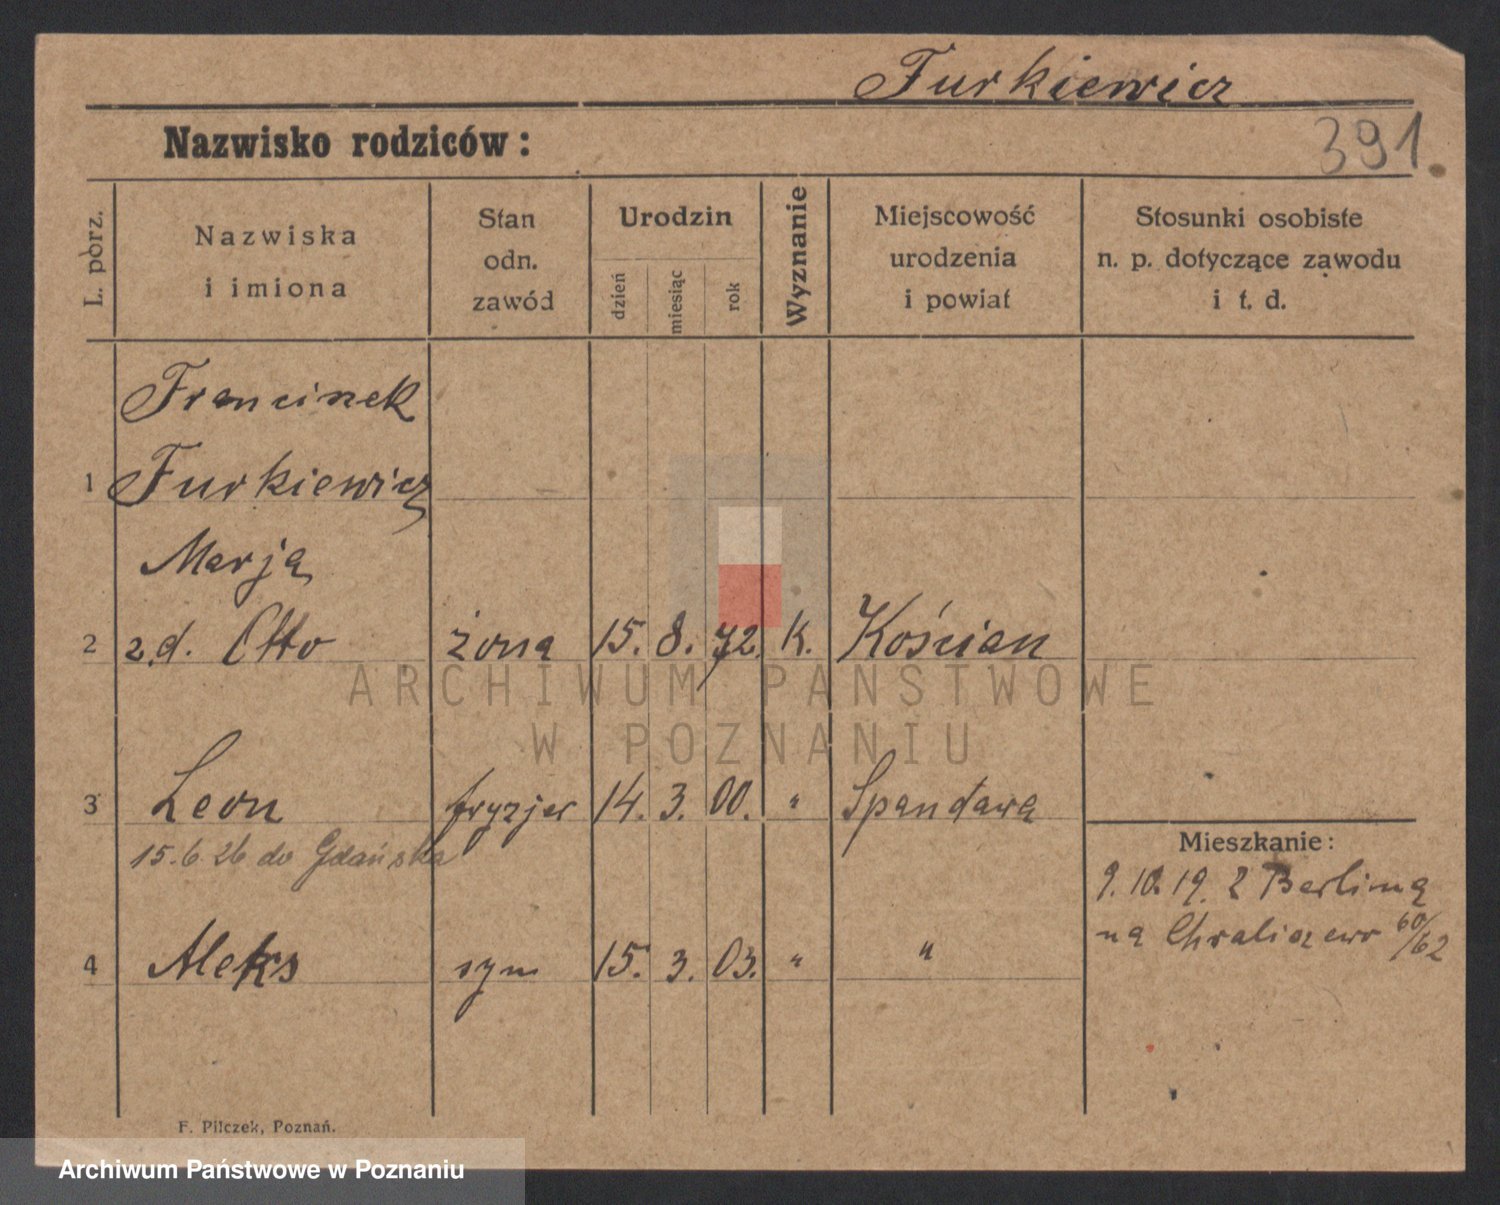 Furkiewicz
Nazwisko rodziców:
391.
L. porz.
Nazwiska
i imiona
Stan
odn.
zawód
Urodzin
dzień
miesiąc
rok
Wyznanie
Miejscowość
urodzenia
i powiat
Stosunki osobiste
n. p. dotyczące zawodu
i t. d.
Franciszek
1 Furkiewicz
Marja
2 z d. Otto żona 15. 8. 72. K. Kościan
ARCHIWUM PAŃSTWOWE
W POZNANIU
3 Leon fryzjer 14. 3. 00. " Spandawa
15.6 26 do Gdańska
Mieszkanie:
9. 10. 19. z Berlina
na Chwaliszewo 60/62
4 Aleks syn 15. 3. 03. " "
F. Pilczek, Poznań.
Archiwum Państwowe w Poznaniu